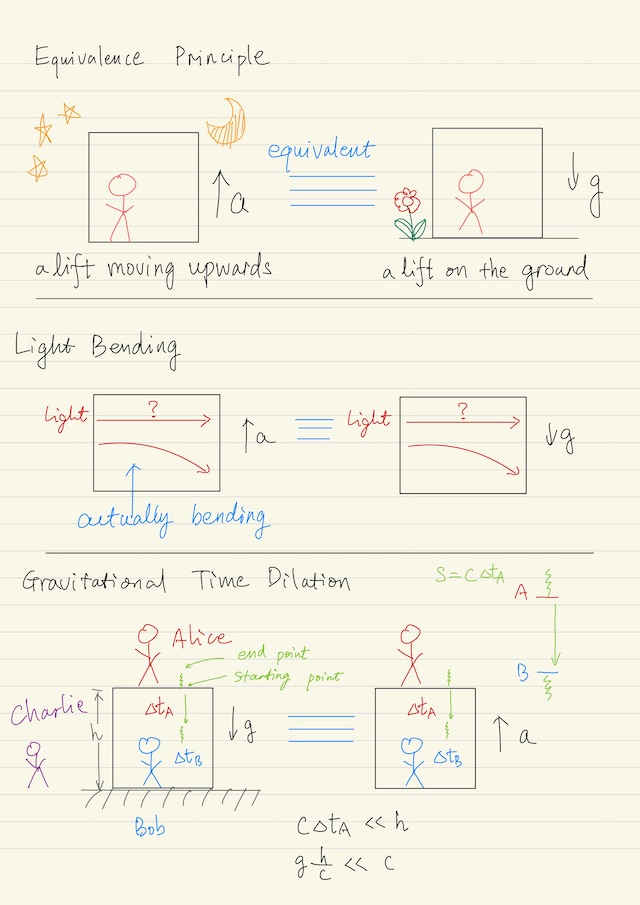 Equivalence Principle
equivalent
a
g
a lift moving upwards
a lift on the ground
Light Bending
Light
?
a
Light
?
g
actually bending
Gravitational Time Dilation
S = C Δt_A
A
B
Alice
end point
starting point
Charlie
h
Δt_A
g
Δt_B
Bob
Δt_A
Δt_B
a
CΔt_A << h
g h/c << c